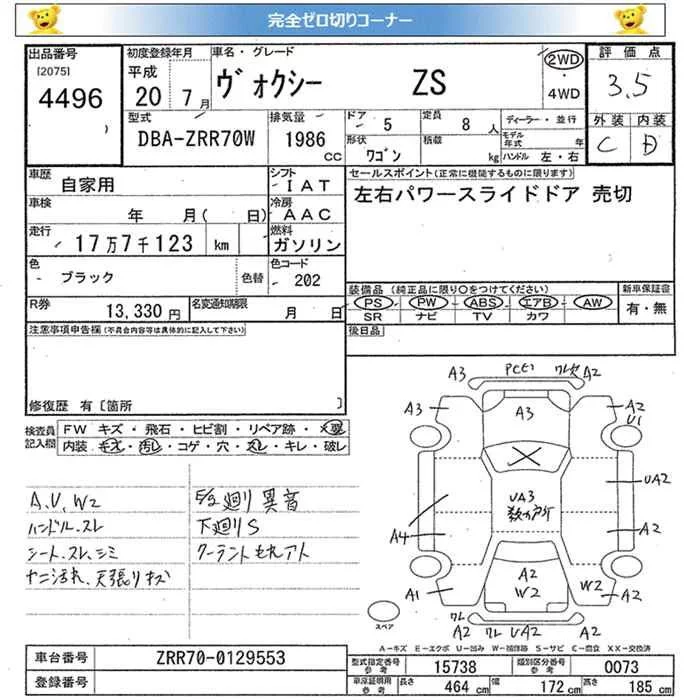 完全ゼロ切りコーナー
出品番号 初度登録年月 車名・グレード 評価点
[2075] 4496
平成 20年 7月
ヴォクシー ZS
2WD ・ 4WD
3.5
型式 排気量 ドア 定員 ディーラー・並行 外装 内装
DBA-ZRR70W 1986 CC 5 8人
形状 積載 モデル年式 年 C D
ワゴン kg ハンドル 左・右
車歴 シフト セールスポイント(正常に機能するものに限ります)
自家用 IAT 左右パワースライドドア 売切
車検 冷房
年 月( 日) AAC
走行 燃料
17万7千123 km ガソリン
色 色コード
ブラック 色替 202
装備品 (純正品に限り○をつけてください) 新車保証書
PS PW ABS エアB AW 有・無
SR ナビ TV カワ
R券 名変通知期限
13,330円 月 日
後日品
注意事項申告欄(不具合内容等は具体的に記入して下さい)
修復歴 有〔箇所 〕
検査員記入欄 FW キズ・飛石・ヒビ割・リペア跡・×要
内装 キズ・汚レ・コゲ・穴・スレ・キレ・破レ
A,U,W2
ハンドル.スレ
シート.スレ.シミ
ヤニ汚れ、天張りキズ
異音
下廻りS
クーラントもれアト
A3 A2
A3 A3 A2
U1
UA3
数カ所
UA2
A4 A2
A2
W2 W2
A1 A2
スペア
ワレ
A2 ワレ UA2 A2
A-キズ E-エクボ U-凹み W-補修跡 S-サビ C-腐食 XX-交換済
車台番号 ZRR70-0129553
登録番号
型式指定番号 参考 15738 類別区分番号 参考 0073
車庫証明用 参考 長さ 464 cm 幅 172 cm 高さ 185 cm